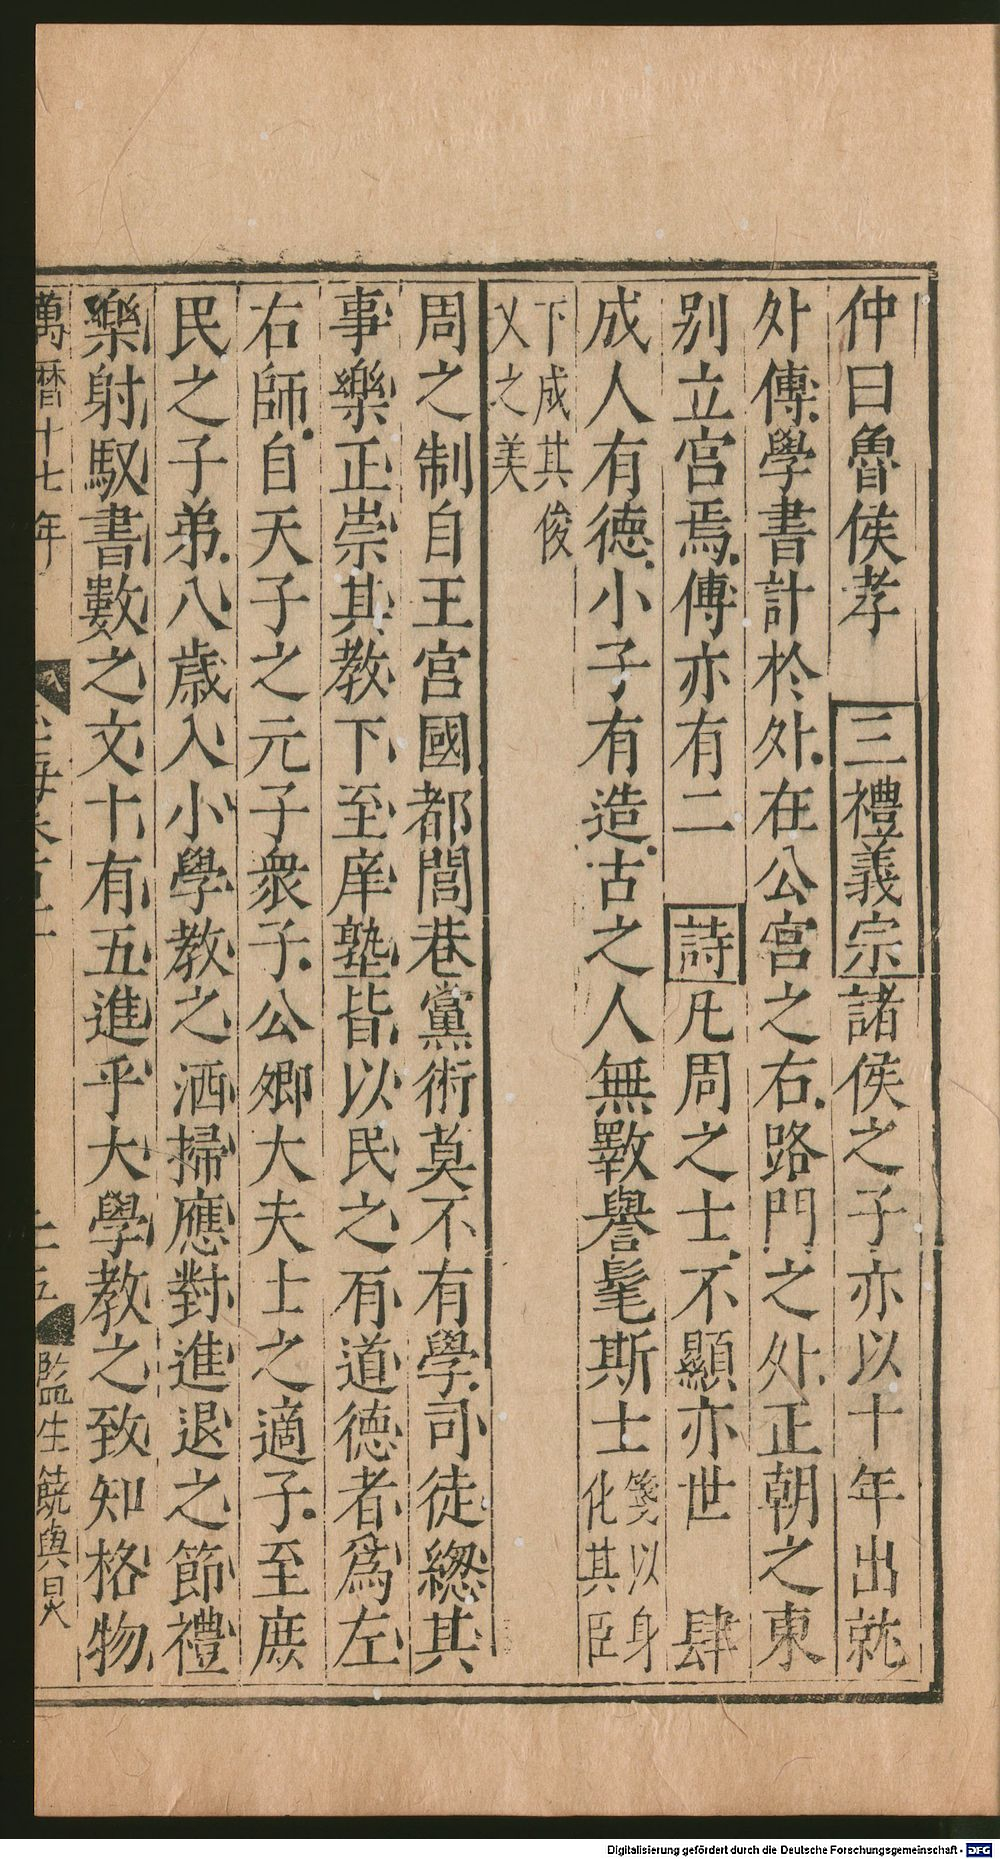 仲曰魯侯孝　三禮義宗諸侯之子亦以十年出就
外傳學書計於外在公宮之右路門之外正朝之東
别立宮焉傅亦有二　詩凡周之士不顯亦世　肆
成人有德小子有造古之人無斁譽髦斯士箋以身化其臣
下成其俊
乂之美
周之制自王宮國都閭巷黨術莫不有學司徒緫其
事樂正崇其教下至庠塾皆以民之有道德者爲左
右師自天子之元子衆子公卿大夫士之適子至庶
民之子弟八歲入小學教之洒掃應對進退之節禮
樂射馭書數之文十有五進乎大學教之致知格物
萬曆十七年
十五
監生饒與
Digitalisierung gefördert durch die Deutsche Forschungsgemeinschaft - DFG